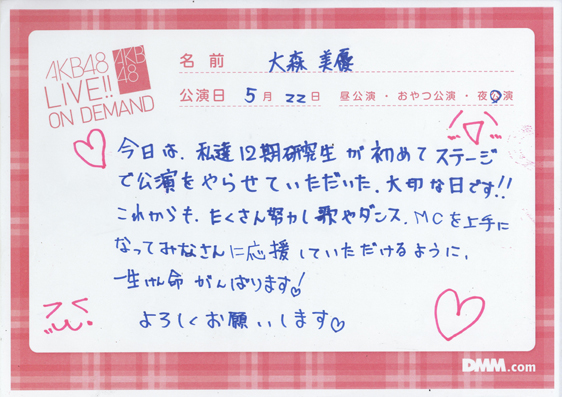 AKB48
LIVE!!
ON DEMAND
AKB
48
名前 大森美優
公演日 5月22日 昼公演・おやつ公演・夜公演
今日は、私達12期研究生が初めてステージ
で公演をやらせていただいた、大切な日です!!
これからも、たくさん努力し歌やダンス、MCを上手に
なってみなさんに応援していただけるように、
一生けん命がんばります!
よろしくお願いします♡
DMM.com